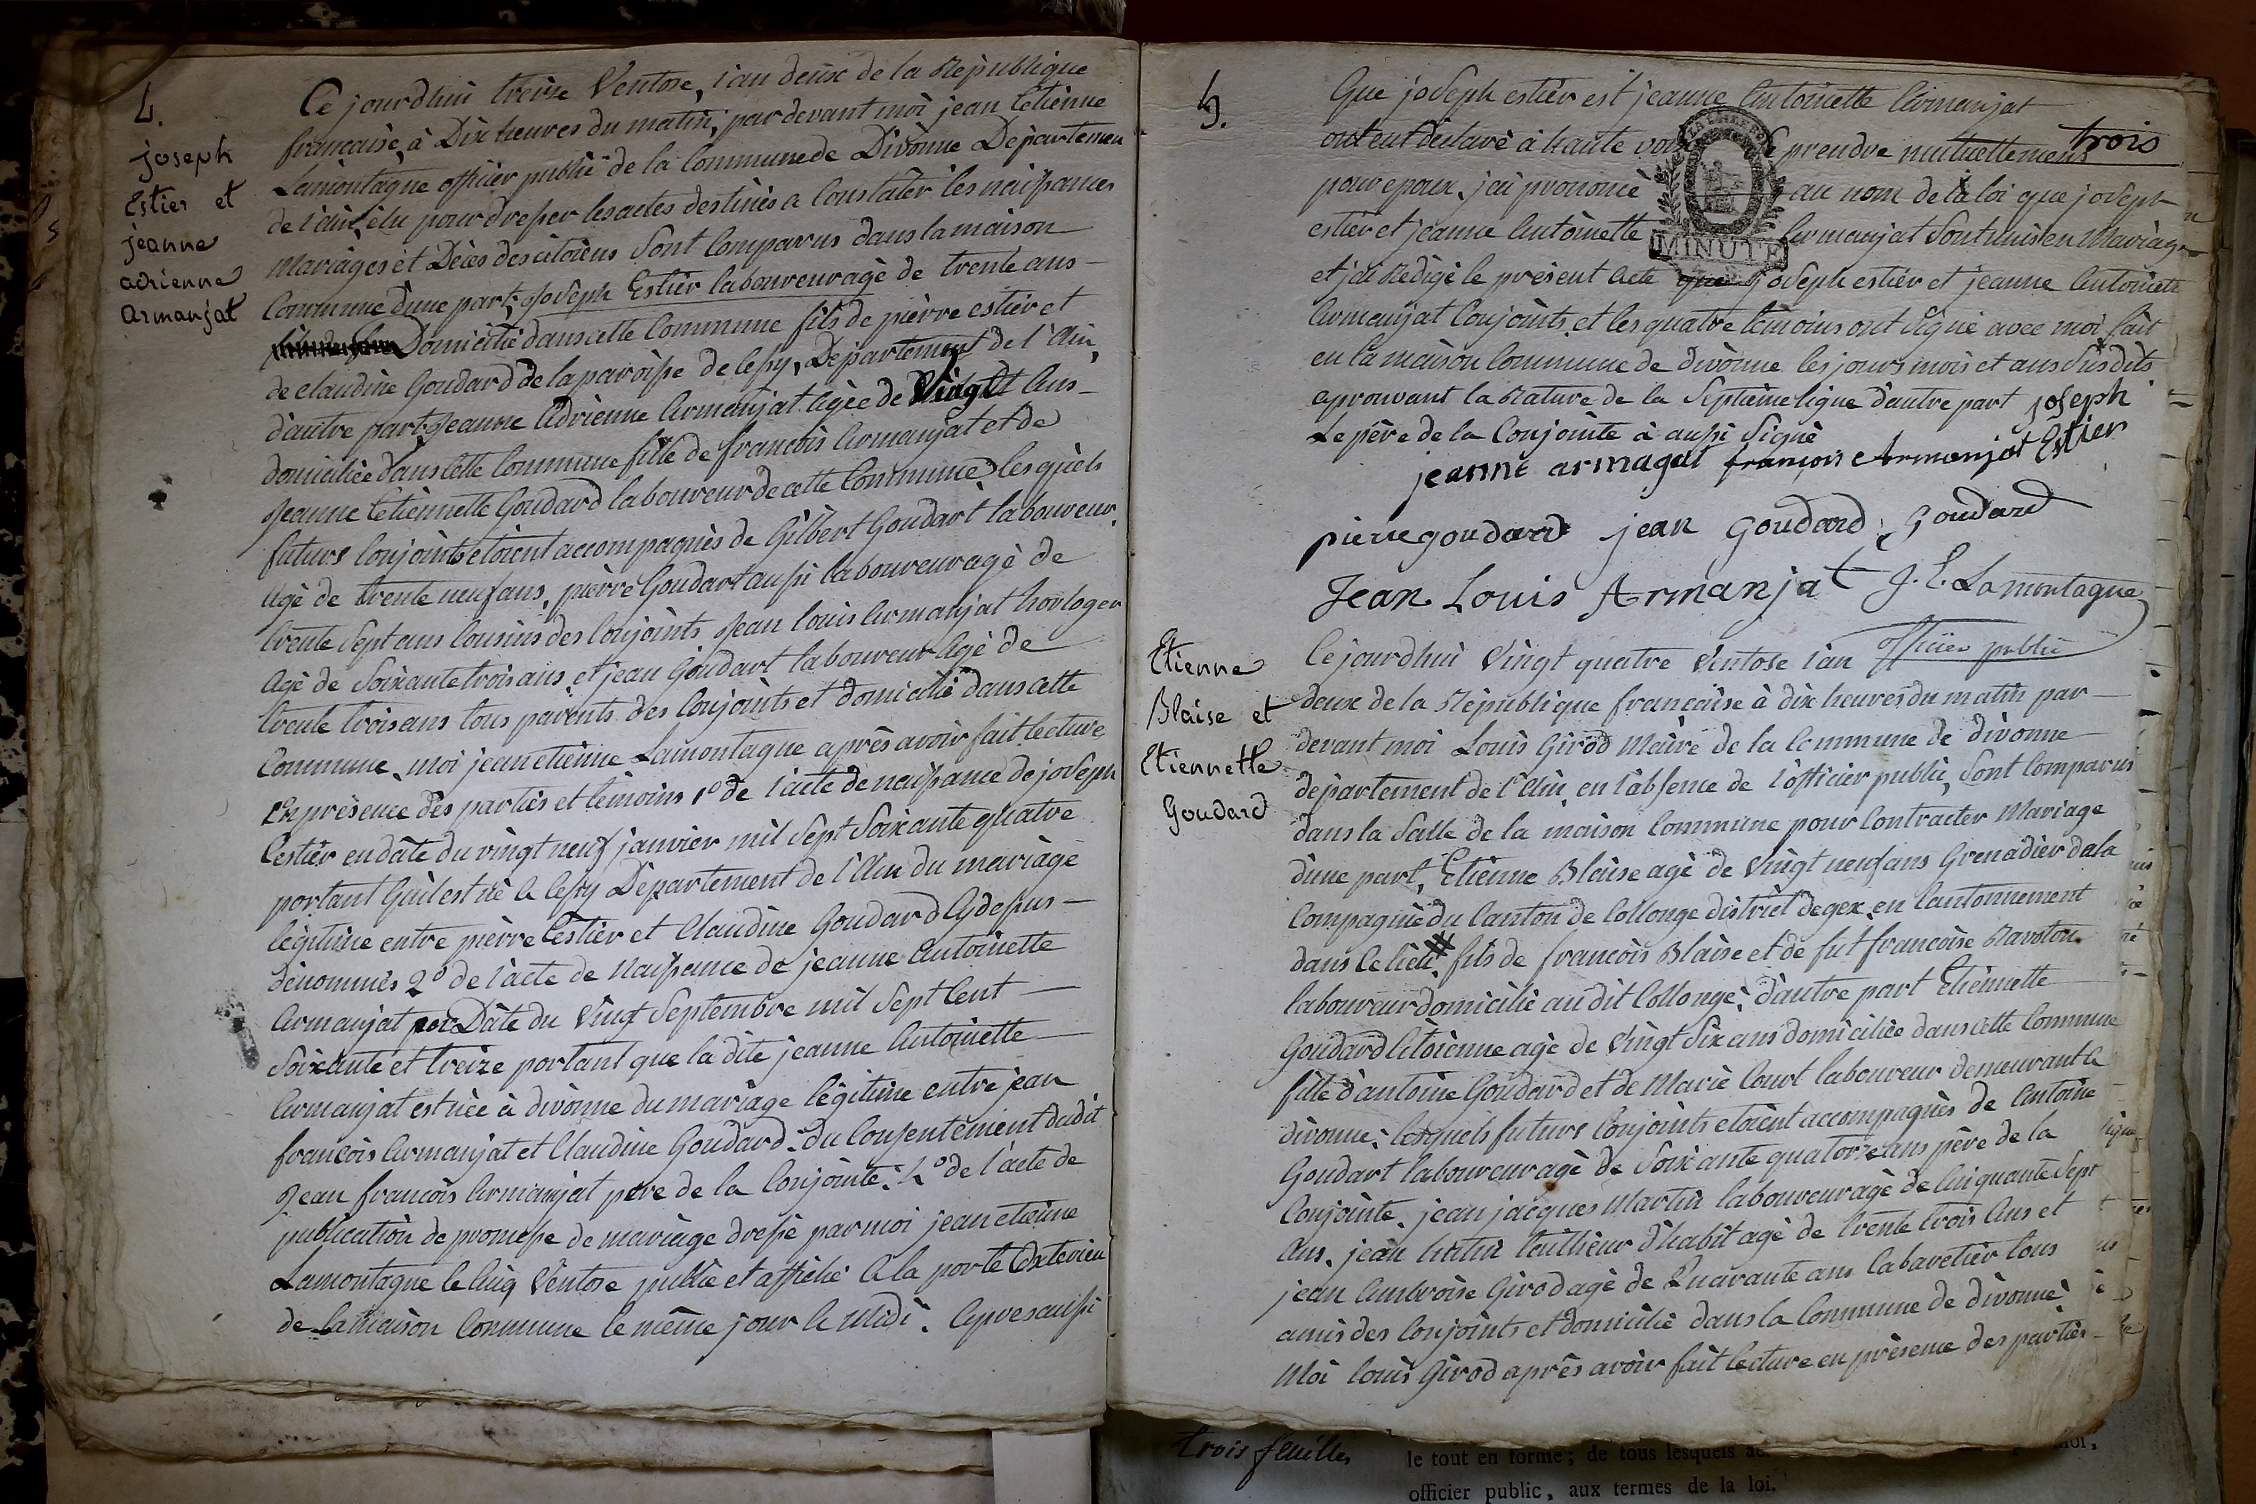 4.
joseph
Estier et
jeanne
adrienne
armanjat
Ce jourd'hui treize Ventose, l'an deux de la République
francaise, à Dix heures du matin, par devant moi jean Etiènne
Lamontagne officier public de la Commune de Divonne Departemen
de l'ain, élu pour dresser les actes destinés a Constater les naissances
Mariages et Décès des citoiens Sont Comparus dans la maison
Commune d'une part, Joseph Estier laboureur agè de trente ans
Domicilié dans cette Commune fils de pièrre estier et
de claudine Goudard de la paroisse de lessy, Departement de l'Ain,
d'autre part Jeanne Adrienne Armanjat Agèe de Vingt Ans
domiciliée dans cette Commune fille de francois Armanjat et de
Jeanne Etiennette Goudard laboureur de cette Commune lesquels
futurs Conjoints etoient accompagnès de Gilbert Goudart laboureur
agè de trente neuf ans, pièrre Goudart aussi laboureur agè de
trente Sept ans Cousins des Conjoints Jean louis Armanjat horloger
Agè de Soixante trois ans, et jean Goudart laboureur Agè de
trente trois ans tous parents des Conjoints et domicilié dans cette
Commune, moi jean etiènne Lamontagne après avoir fait lecture
En présence des parties et témoins 1º de l'acte de naissance de joseph
Estier en date du vingt neuf janvier mil Sept Soixante quatre
portant Quil est nè a lessy Département de l'Ain du mariage
légitime entre pièrre Estier et Claudine Goudard Cydessus
dénommés 2º de l'acte de Naissance de jeanne Antoinette
Armanjat Date du Vingt Septembre mil Sept Cent
Soixante et treize portant que la dite jeanne Antoinette
Armanjat est née à divonne du mariage légitime entre jean
françois Armanjat et Claudine Goudard. du Consentement dudit
Jean francois Armanjat pere de la Conjointe. 4º de l'acte de
publication de promesse de mariage dressé par moi jean etiènne
Lamontagne le Cinq Ventose publié et affiché A la porte Exterieu
de la maison Commune le même jour a Midi. Apres aussi
5.
trois
Que joseph estier est jeanne Antoinette Armanjat
ont eut declaré à haute voix Se prendre mutuellement
pour epoux, jai prononcé au nom de la loi que joseph
estier et jeanne Antoinette Armanjat Sont unis en Mariage
MINUTE
et j'ai rédigé le présent Acte que joseph estier et jeanne Antoinette
Armanjat Conjoints, et les quatre témoins ont Signé avec moi fait
en la maison Commune de divonne les jours mois et ans Susdits
aprouvant la rature de la Septieme ligne d'autre part joseph
Le père de la Conjointe à aussi Signè Estier
jeanne armagat françois Armanjat
pierre goudard jean Goudard Goudard
Jean Louis Armanjat J. E. Lamontagne
officier public
Etienne
Blaise et
Etiennette
Goudard
Ce jourdhui Vingt quatre Ventose l'an
deux de la République francaise à dix heures du matin par
devant moi Louis Girod Maire de la Commune de divonne
département de l'Ain, en l'absence de l'officier public, Sont Comparus
dans la Salle de la maison Commune pour Contracter Mariage
d'une part, Etienne Blaise agè de Vingt neuf ans Grenadier de la
Compagnie du Canton de Collonge district de gex, en Cantonnement
dans Ce lieu, fils de francois Blaise et de fut francoise Ravoton
laboureur domicilié au dit Collonge, d'autre part Etiennette
Goudard Citoienne agè de Vingt Six ans domiciliée dans cette Commune
fille d'antoine Goudard et de Marie Court laboureur demeurant a
divonne, lesquels futurs Conjoints etoient accompagnès de Antoine
Goudart laboureur agè de Soixante quatorze ans père de la
Conjointe, jean jacques Martin laboureur agè de Cinquante Sept
Ans, jean tailleur d'habit agè de trente trois Ans et
jean Ambroise Girod agè de Quarante ans Cabaretier tous
amis des Conjoints et domicilié dans la Commune de divonne
Moi louis Girod après avoir fait lecture en présence des parties
trois feuilles
le tout en forme; de tous lesquels
officier public, aux termes de la loi.